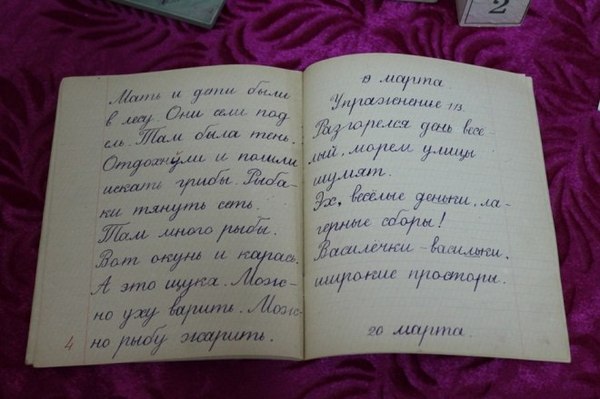 Мать и дети были
в лесу. Они сели под
ель. Там была тень.
Отдохнули и пошли
искать грибы. Рыба-
ки тянуть сеть.
Там много рыбы.
Вот окунь и карась.
А это щука. Мож-
но уху варить. Мож-
но рыбу жарить.
4
19 марта
Упражнение 113.
Разгорелся день весе-
лый, морем улицы
шумят.
Эх, весёлые деньки, ла-
герные сборы!
Василёчки - васильки,
широкие просторы.
20 марта.
2